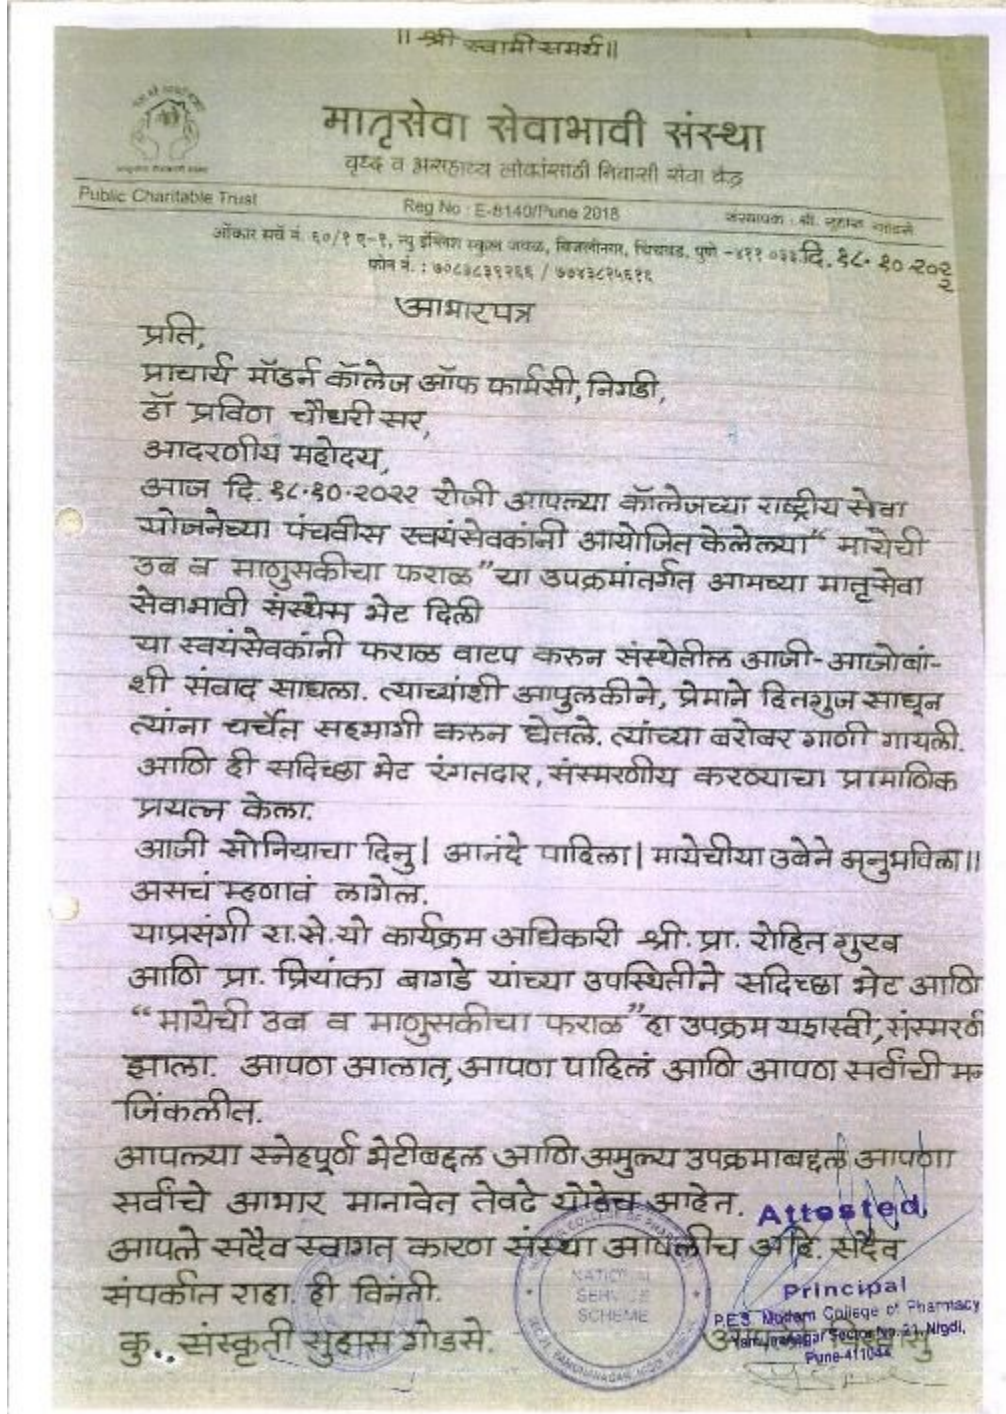 ॥ श्री स्वामी समर्थ ॥
मातृसेवा सेवाभावी संस्था
वृध्द व असहाय्य लोकांसाठी निवासी सेवा केंद्र
Public Charitable Trust
Reg No : E-8140/Pune 2018
संस्थापक : श्री. सुहास गोडसे
ओंकार सर्वे नं. ६०/१ ए-१, न्यु इंग्लिश स्कुल जवळ, बिजलीनगर, चिंचवड, पुणे -४११ ०३३. दि. १८.१०.२०२२
फोन नं. : ७०८३८३९२६६ / ७७४३८२५६१६
आभारपत्र
प्रति,
प्राचार्य मॉडर्न कॉलेज ऑफ फार्मसी, निगडी,
डॉ प्रविण चौधरी सर,
आदरणीय महोदय,
आज दि. १८.१०.२०२२ रोजी आपल्या कॉलेजच्या राष्ट्रीय सेवा
योजनेच्या पंचवीस स्वयंसेवकांनी आयोजित केलेल्या " मायेची
उब व माणुसकीचा फराळ " या उपक्रमांतर्गत आमच्या मातृसेवा
सेवाभावी संस्थेस भेट दिली
या स्वयंसेवकांनी फराळ वाटप करुन संस्थेतील आजी-आजोबां-
शी संवाद साधला. त्याच्यांशी आपुलकीने, प्रेमाने हितगुज साधून
त्यांना चर्चेत सहभागी करुन घेतले. त्यांच्या बरोबर गाणी गायली.
आणि ही सदिच्छा भेट रंगतदार, संस्मरणीय करण्याचा प्रामाणिक
प्रयत्न केला.
आजी सोनियाचा दिनु | आनंदे पाहिला | मायेचीया उबेने अनुभविला ॥
असचं म्हणावं लागेल.
याप्रसंगी रा.से.यो कार्यक्रम अधिकारी श्री. प्रा. रोहित गुरव
आणि प्रा. प्रियांका बागडे यांच्या उपस्थितीने सदिच्छा भेट आणि
" मायेची उब व माणुसकीचा फराळ " हा उपक्रम यशस्वी, संस्मरणी
झाला. आपण आलात, आपण पाहिलं आणि आपण सर्वांची मन
जिंकलीत.
आपल्या स्नेहपूर्ण भेटीबद्दल आणि अमुल्य उपक्रमाबद्दल आपणा
सर्वांचे आभार मानावेत तेवढे थोडेच आहेत.
Attested
आपले सदैव स्वागत कारण संस्था आपलीच आहे. सदैव
संपर्कात राहा. ही विनंती.
NATIONAL
SERVICE
SCHEME
Principal
P.E.S. Modern College of Pharmacy
Yamunanagar Sector No. 21, Nigdi,
Pune-411044
कु.. संस्कृती सुहास गोडसे.